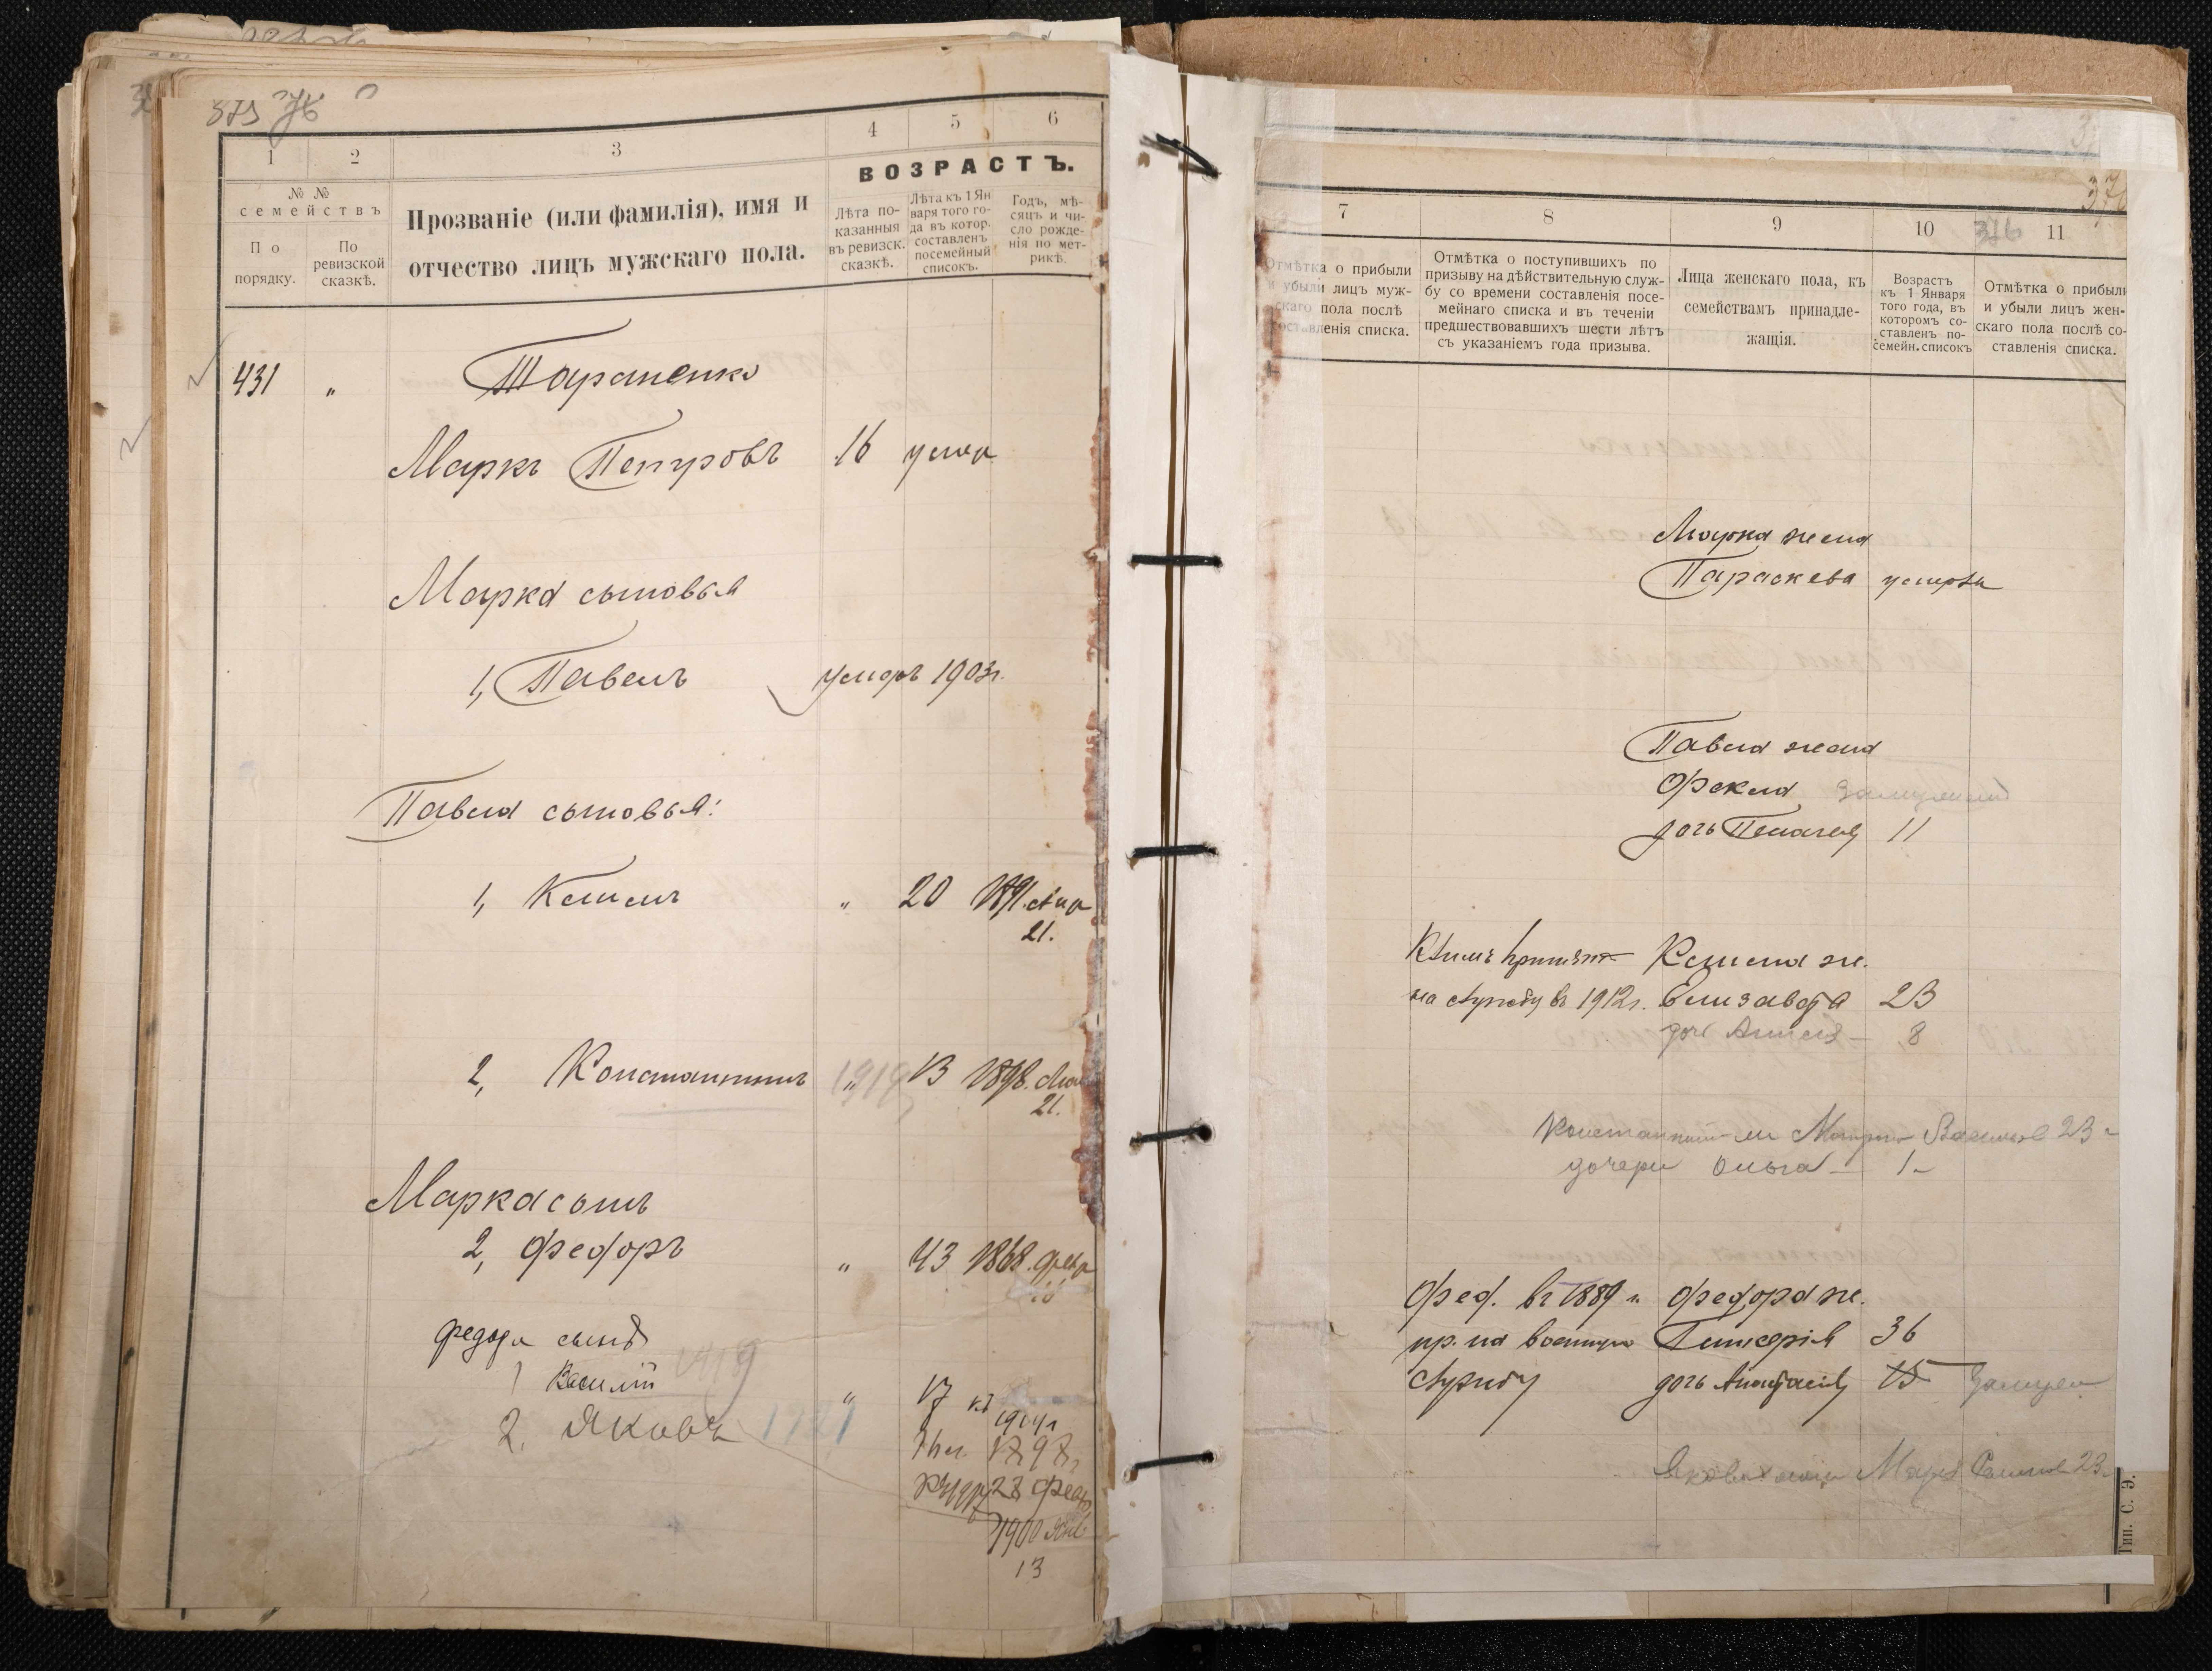 375
1
2
3
4
5
6
№ №
семействъ
По
порядку.
По
ревизской
сказкѣ.
Прозваніе (или фамилія), имя и
отчество лицъ мужскаго пола.
ВОЗРАСТЪ.
Лѣта по-
казанныя
въ ревизск.
сказкѣ.
Лѣта къ 1 Ян
варя того го-
да въ котор.
составленъ
посемейный
списокъ.
Годъ, мѣ-
сяцъ и чи-
сло рожде-
нія по мет-
рикѣ.
431 " Тараненко
Маркъ Петровъ 16 умер
Марка сыновья
1, Павелъ умеръ 1903 г.
Павла сыновья:
1, Климъ " 20 1891.
21.
2, Константинъ 1919 " 13 1898.
21.
Марка сынъ
2, Федоръ " 43 1868. февр
Федора сынъ
1 Василій 1919 " 17 къ
1904 г
2, Яковъ 1921
1897
28 февр
1900 Янв
13
376
7
8
9
10
376
11
Отмѣтка о прибыли
и убыли лицъ муж-
скаго пола послѣ
составленія списка.
Отмѣтка о поступившихъ по
призыву на дѣйствительную служ-
бу со времени составленія посе-
мейнаго списка и въ теченіи
предшествовавшихъ шести лѣтъ
съ указаніемъ года призыва.
Лица женскаго пола, къ
семействамъ принадле-
жащія.
Возрастъ
къ 1 Января
того года, въ
которомъ со-
ставленъ по-
семейн. списокъ
Отмѣтка о прибыли
и убыли лицъ жен-
скаго пола послѣ со-
ставленія списка.
Марка жена
Параскева умерла
Павла жена
Фекла замужем
дочь Пелагея 11
Климъ принятъ Клима ж.
на службу въ 1912 г. Елизавета 23
доч 8
Константин Васильев 23
дочери Ольга — 1 —
Фед. въ 1889 г. Федора ж.
пр. на военную Гликерія 36
службу дочь Анастасія 15 Замужем
Якова Мария 23
Тип. С. Э.